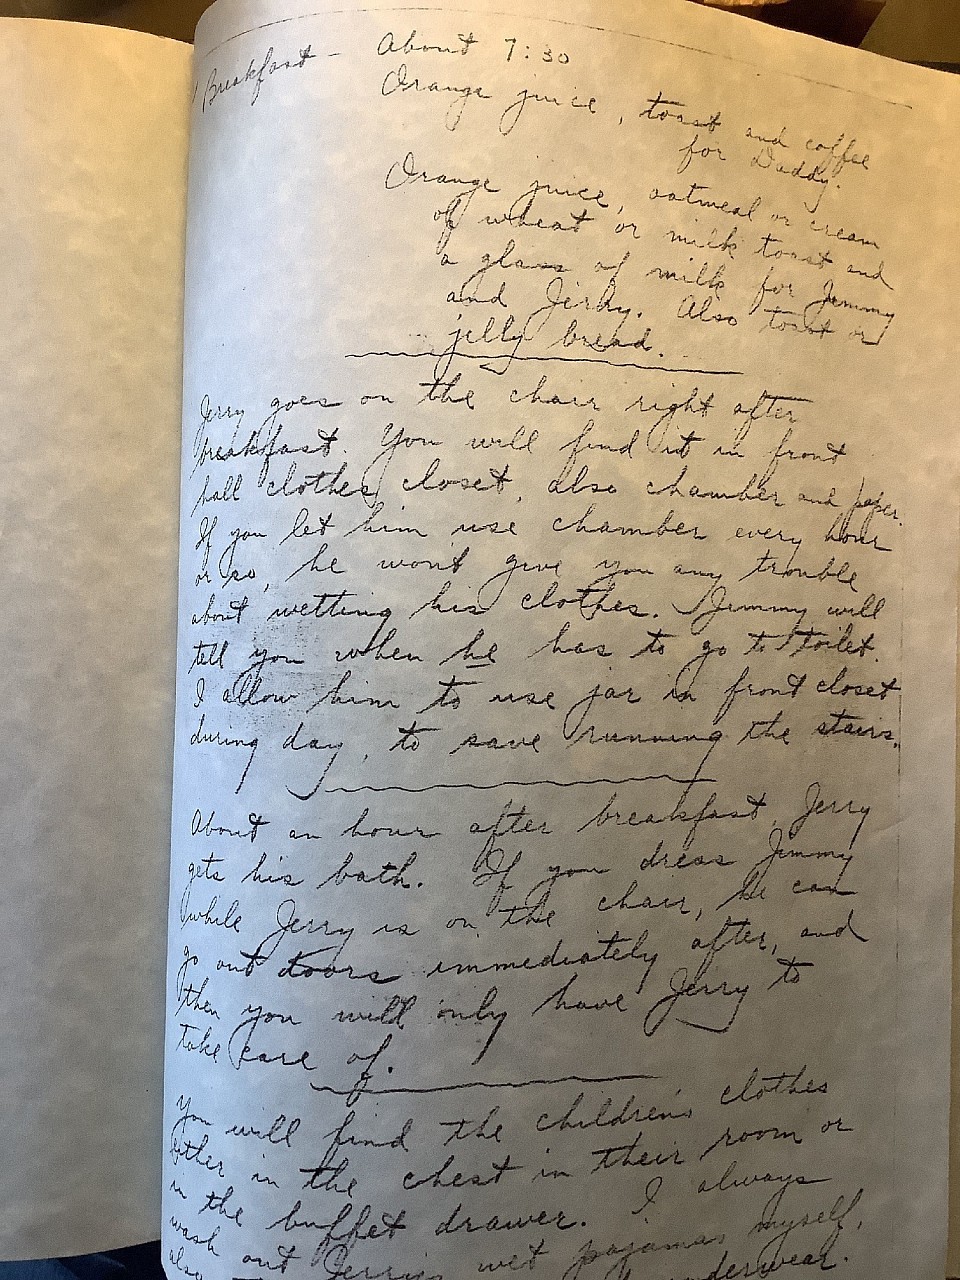 Breakfast - About 7:30
Orange juice, toast and coffee
for Daddy.
Orange juice, oatmeal or cream
of wheat or milk toast and
a glass of milk for Jimmy
and Jerry. Also toast or
jelly bread.
Jerry goes on the chair right after
breakfast. You will find it in front
hall clothes closet, also chamber and paper.
If you let him use chamber every hour
or so, he won't give you any trouble
about wetting his clothes. Jimmy will
tell you when he has to go to toilet.
I allow him to use jar in front closet
during day, to save running the stairs.
About an hour after breakfast, Jerry
gets his bath. If you dress Jimmy
while Jerry is on the chair, he can
go out doors immediately after, and
then you will only have Jerry to
take care of.
You will find the children's clothes
either in the chest in their room or
in the buffet drawer. I always
wash out Jerry's wet pajamas myself,
also underwear.